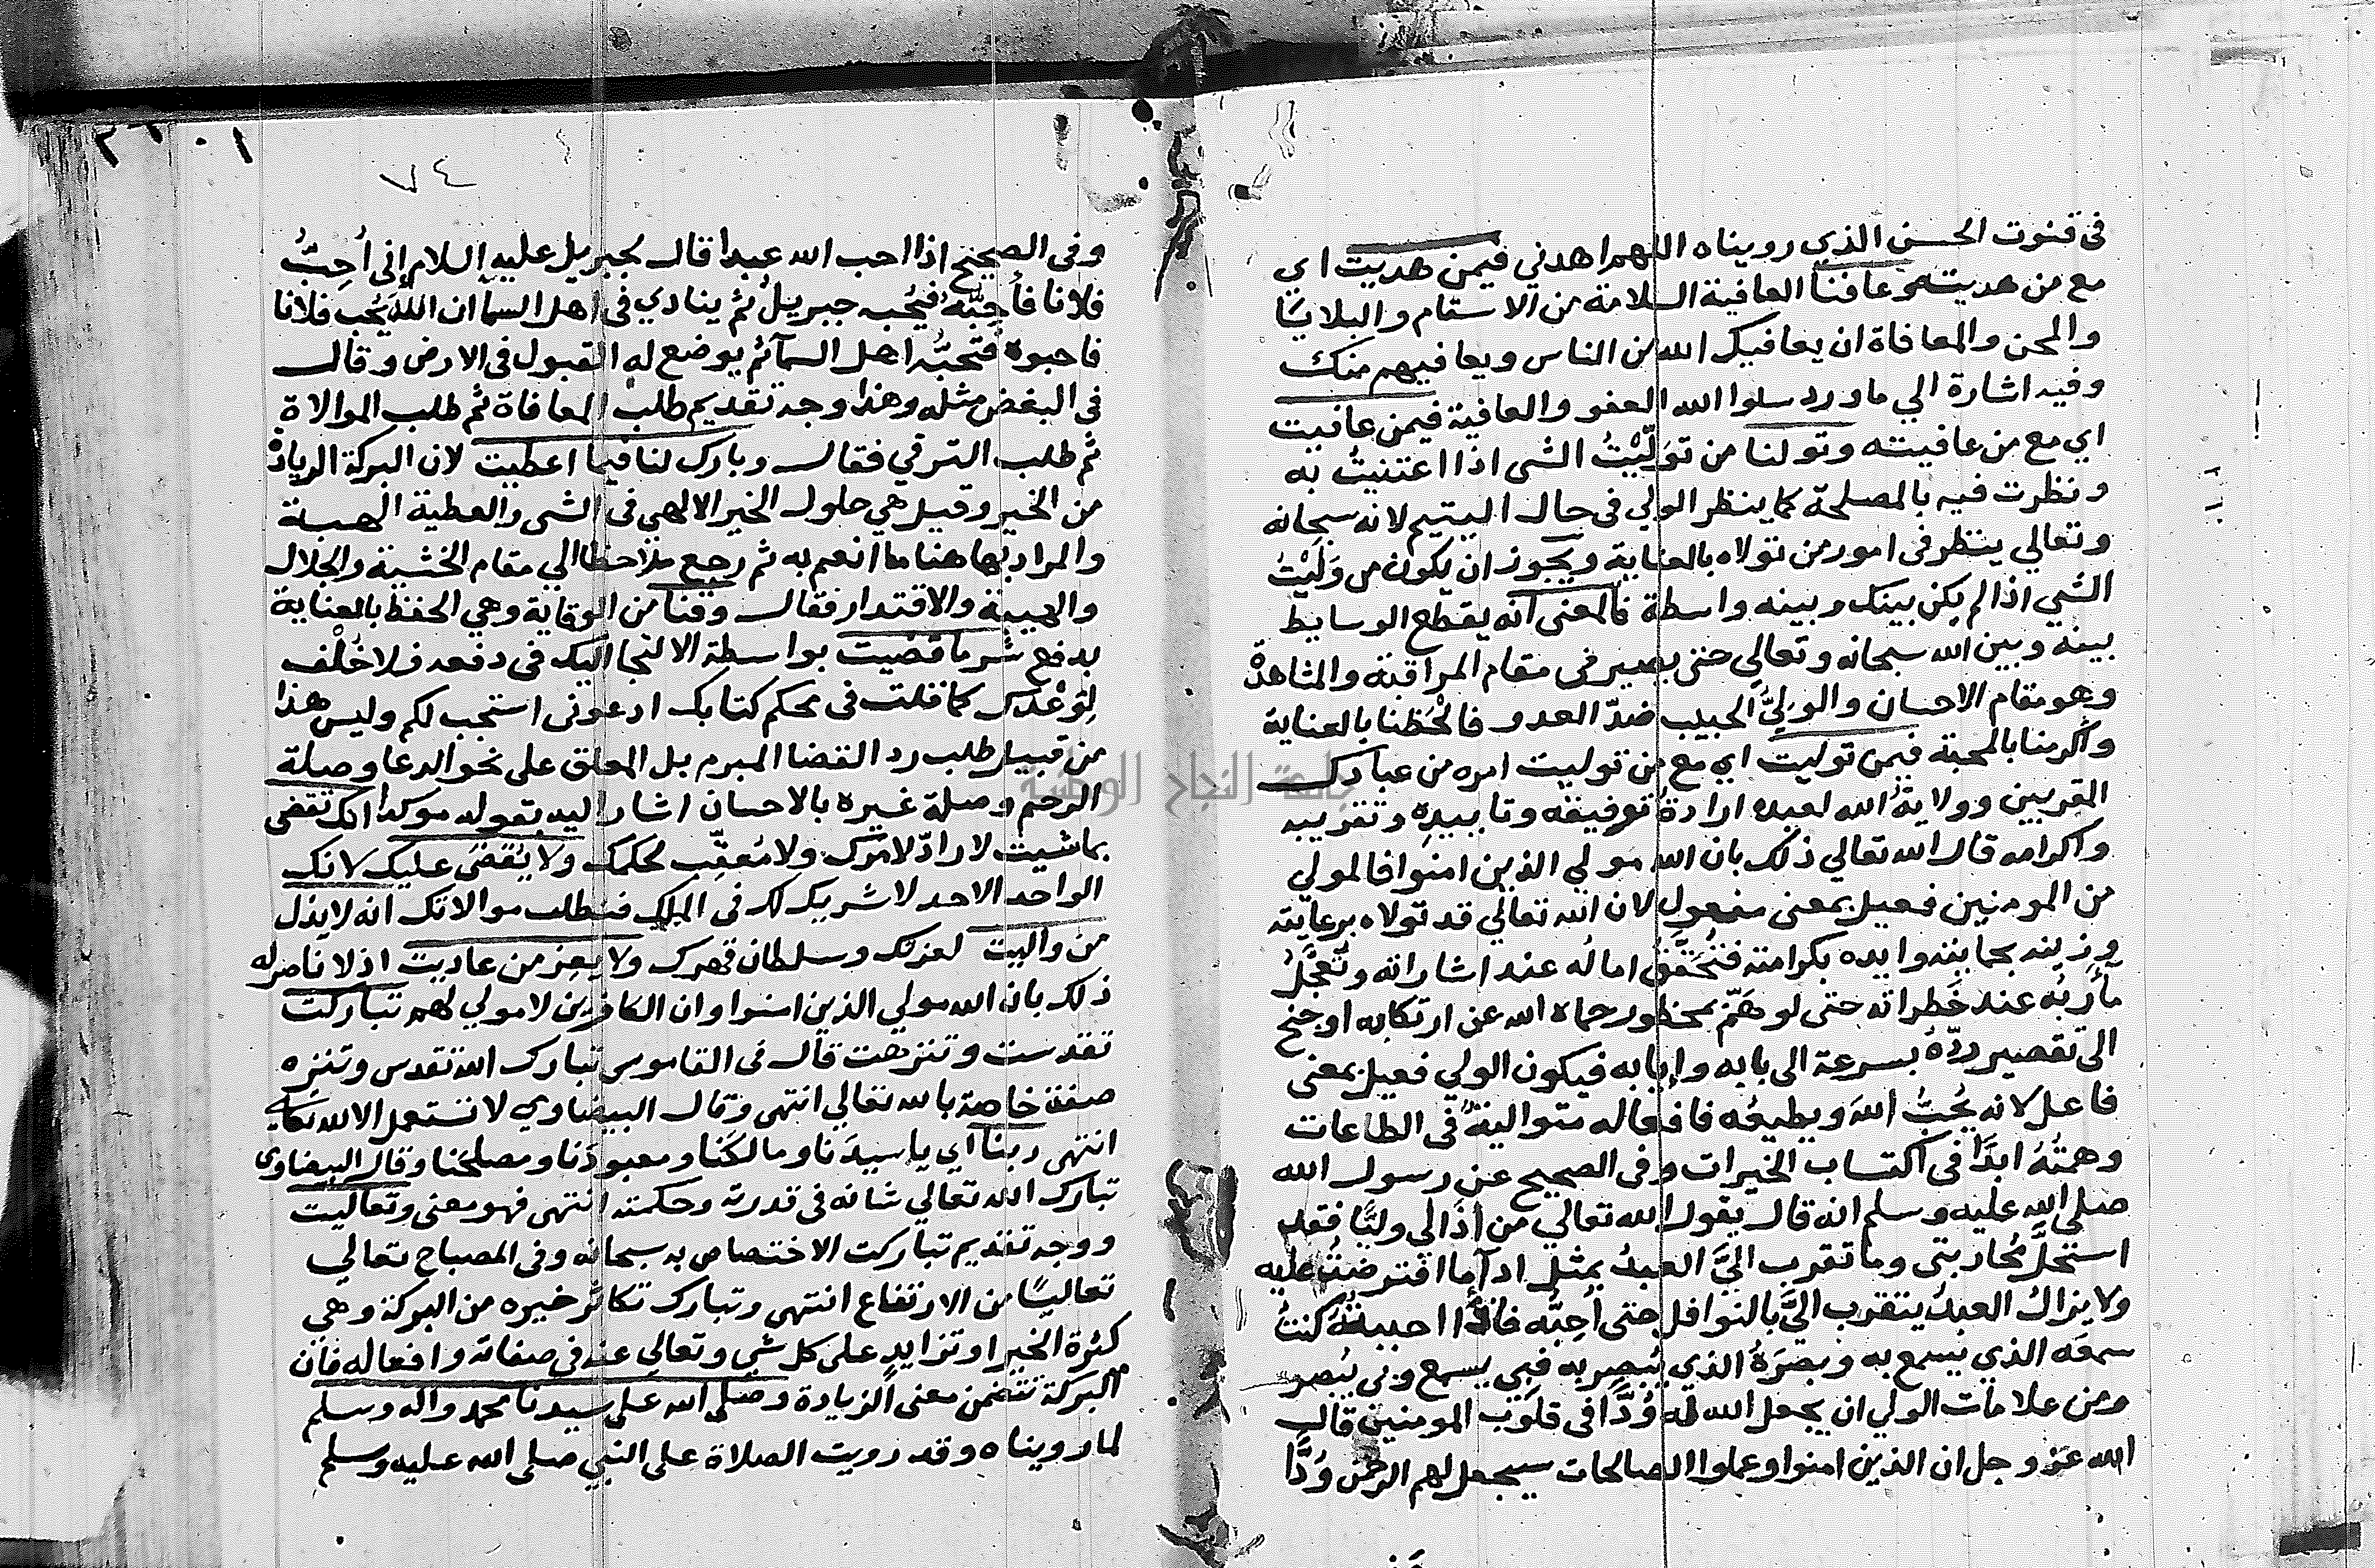 في قنوت الحسن الذي رويناه اللهم اهدني فيمن هديت اي
مع من هديته وعافنا العافية السلامة من الاسقام والبلايا
والمحن والمعافاة ان يعافيك الله من الناس ويعافيهم منك
وفيه اشارة الي ما ورد سلوا الله العفو والعافية فيمن عافيت
اي مع من عافيته وتولنا من تَوَلَّيْتُ الشي اذا اعتنيتُ به
ونظرت فيه بالمصلحة كما ينظر الولي في حال اليتيم لانه سبحانه
وتعالي ينظر في امور من تولاه بالعناية ويجوز ان يكون من وَلِيْتُ
الشي اذا لم يكن بينك وبينه واسطة فالمعني انه يقطع الوسايط
بينه وبين الله سبحانه وتعالي حتي يصير في مقام المراقبة والمشاهدة
وهو مقام الاحسان والوليُّ الحبيب ضدّ العدو فالحظنا بالعناية
واكرمنا بالمحبة فيمن توليت اي مع من توليت امره من عبادك
المقربين وولاية الله لعبده ارادة توفيقه وتاييده وتقريبه
واكرامه قال الله تعالي ذلك بان الله مولي الذين امنوا فالمولي
من المومنين فعيل بمعني مفعول لان الله تعالي قد تولاه برعايته
وزينه بحمايته وايده بكرامته فتُحَقَّقُ امالُه عند اشاراته وتُعَجَّلُ
مآربُه عند خَطراته حتي لو هَمّ بمحظور حماه الله عن ارتكابه او جنح
الى تقصير ردّهُ بسرعة الى بابه وإيابه فيكون الولي فعيل بمعني
فاعل لانه يُحبُّ اللهَ ويطيعُه فافعاله متواليةٌ في الطاعات
وهمتُهُ ابدًا في اكتساب الخيرات وفى الصحيح عن رسول الله
صلى الله عليه وسلم انه قال يقول الله تعالي من اذَا لي وليًّا فقد
استحلَّ مُحاربتي وما تقرب اليَّ العبدُ بمثل اداٰ ما افترضتُ عليه
ولا يزالُ العبدُ يتقرب اليَّ بالنوافل حتى اُحِبُّه فاذا احببتُهُ كنتُ
سمعَه الذي يسمع به وبصرَهُ الذي يُبصِر به فبِي يسمع وبي يُبصر
ومن علامات الولي ان يجعل الله له وُدًّا في قلوب المومنين قال
الله عز وجل ان الذين امنوا وعملوا الصالحات سيجعل لهم الرحمن وُدًّا
٧٤
وفي الصحيح اذا احب الله عبدا قال لجبريل عليه السلام إني أُحِبُّ
فلانا فأَحِبَّهُ فيُحبه جبريلُ ثم ينادي في اهل السماٰ ان اللهَ يُحب فلانا
فاحبوه فتحبُّه اهل السماٰ ثم يوضع له القبول في الارض وقال
في البغض مثله وهذا وجه تقديم طلب المعافاة ثم طلب الموالاة
ثم طلب الترقي فقال وبارك لنا فيما اعطيت لان البركة الزيادة
من الخير وقيل هي حلول الخير الالهي في الشي والعطية الهبة
والمراد بها هنا ما انعم به ثم رجع ملاحظا الي مقام الخشية والجلال
والهيبة والاقتدار فقال وقنا من الوقاية وهي الحفظ بالعناية
بدفع شر ما قضيت بواسطة الالتجا اليك في دفعه فلا خُلْف
لِوَعْدك كما قلت في محكم كتابك ادعوني استجب لكم وليس هذا
من قبيل طلب رد القضا المبرم بل المعلق على نحو الدعا وصلة
الرحم وصلة غيره بالاحسان اشار اليه بقوله موكدا انك تقضي
بما شيت لا رادّ لامرك ولا مُعقِّب لحكمك ولا يُقْضَى عليك لانك
الواحد الاحد لا شريك لك في الملك فنطلب موالاتك انه لا يذل
من واليت لعزتك وسلطان قهرك ولا يعز من عاديت اذ لا ناصر له
ذلك بان الله مولي الذين امنوا وان الكافرين لا مولي لهم تباركت
تقدست وتنزهت قال في القاموس تبارك الله تقدس وتنزه
صفة خاصة بالله تعالي انتهى وقال البيضاوي لا تستعمل الا لله تعالى
انتهى ربنا اي يا سيدَنا ومالكَنا ومعبودَنا ومصلحَنا وقال البيضاوى
تبارك الله تعالي شانه في قدرته وحكمته انتهى فهو معنى وتعاليت
ووجه تقديم تباركت الاختصاص به سبحانه وفى المصباح تعالي
تعاليًا من الارتفاع انتهى وتبارك تكاثر خيره من البركة وهي
كثرة الخير او تزايد على كل شي وتعالي عنه في صفاته وافعاله فان
البركة تتضمن معنى الزيادة وصلى الله على سيدنا محمد واله وسلم
لما رويناه وقد رويت الصلاة على النبي صلى الله عليه وسلم
جامعة النجاح الوطنية